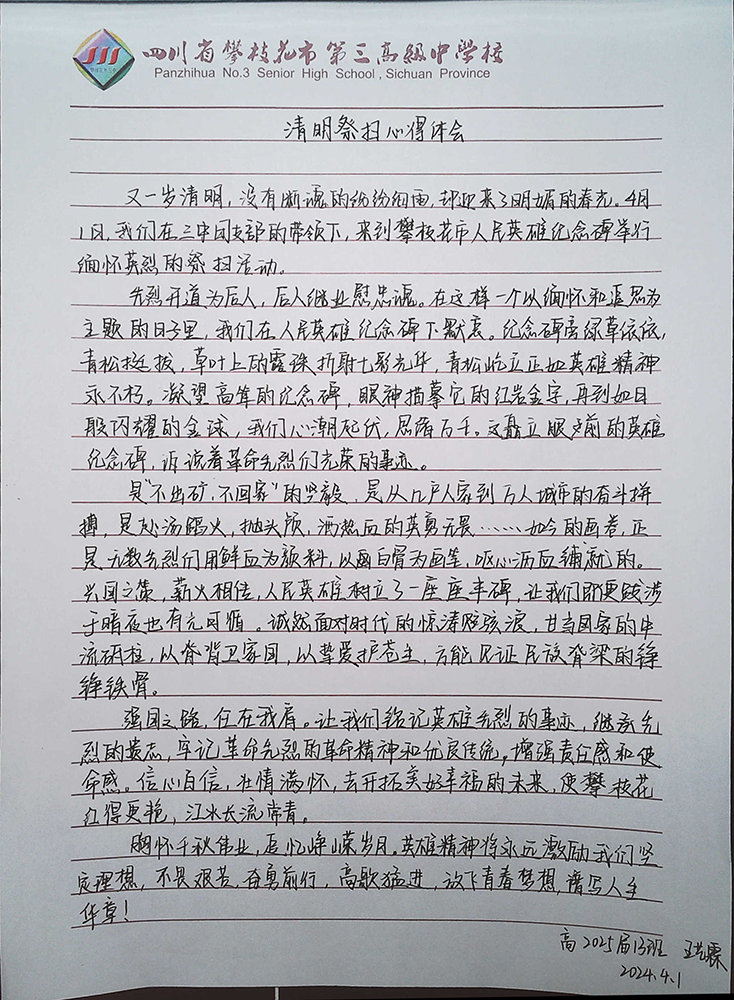 四川省攀枝花市第三高级中学校
Panzhihua No.3 Senior High School , Sichuan Province
清明祭扫心得体会
又一岁清明，没有断魂的纷纷细雨，却迎来了明媚的春光。4月
1日，我们在三中团支部的带领下，来到攀枝花市人民英雄纪念碑举行
缅怀英烈的祭扫活动。
先烈开道为后人，后人继业慰忠魂。在这样一个以缅怀和追思为
主题的日子里，我们在人民英雄纪念碑下默哀。纪念碑旁绿草依依，
青松挺拔，草叶上的露珠折射七彩光华，青松屹立正如英雄精神
永不朽。凝望高耸的纪念碑，眼神描摹它的红岩金字，再到如日
般闪耀的金球，我们心潮起伏，思绪万千。这矗立眼前的英雄
纪念碑，诉说着革命先烈们光荣的事迹。
是“不出矿，不回家”的坚毅，是从几户人家到万人城市的奋斗拼
搏，是赴汤蹈火，抛头颅，洒热血的英勇无畏……如今的画卷，正
是无数先烈们用鲜血为颜料，以白骨为画笔，呕心沥血铺就的。
兴国之策，薪火相传，人民英雄树立了一座座丰碑，让我们即便跋涉
于暗夜也有光可循。诚然面对时代的惊涛骇浪，甘当国家的中
流砥柱，以脊背卫家国，以挚爱护苍生，方能见证民族脊梁的铮
铮铁骨。
强国之路，任在我肩。让我们铭记英雄先烈的事迹，继承先
烈的遗志，牢记革命先烈的革命精神和优良传统，增强责任感和使
命感。信心自信，壮情满怀，去开拓美好幸福的未来，使攀枝花
红得更艳，江水长流常青。
胸怀千秋伟业，追忆峥嵘岁月。英雄精神将永远激励我们坚
定理想，不畏艰苦，奋勇前行，高歌猛进，放飞青春梦想，谱写人生
华章！
高2025届13班 王艺霖
2024.4.1